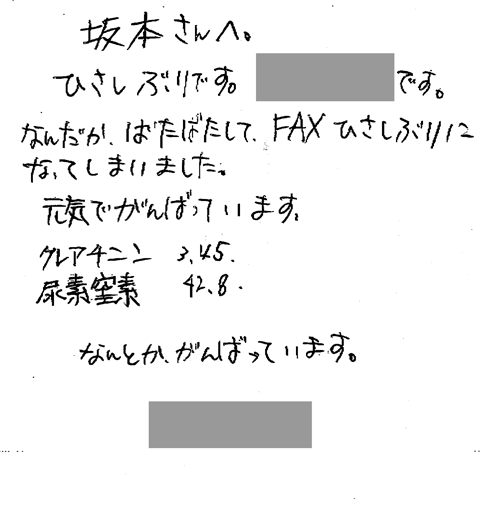 坂本さんへ。
ひさしぶりです。 です。
なんだか、ばたばたして、FAXひさしぶりに
なってしまいました。
元気でがんばっています。
クレアチニン 3.45.
尿素窒素 42.8.
なんとか、がんばっています。